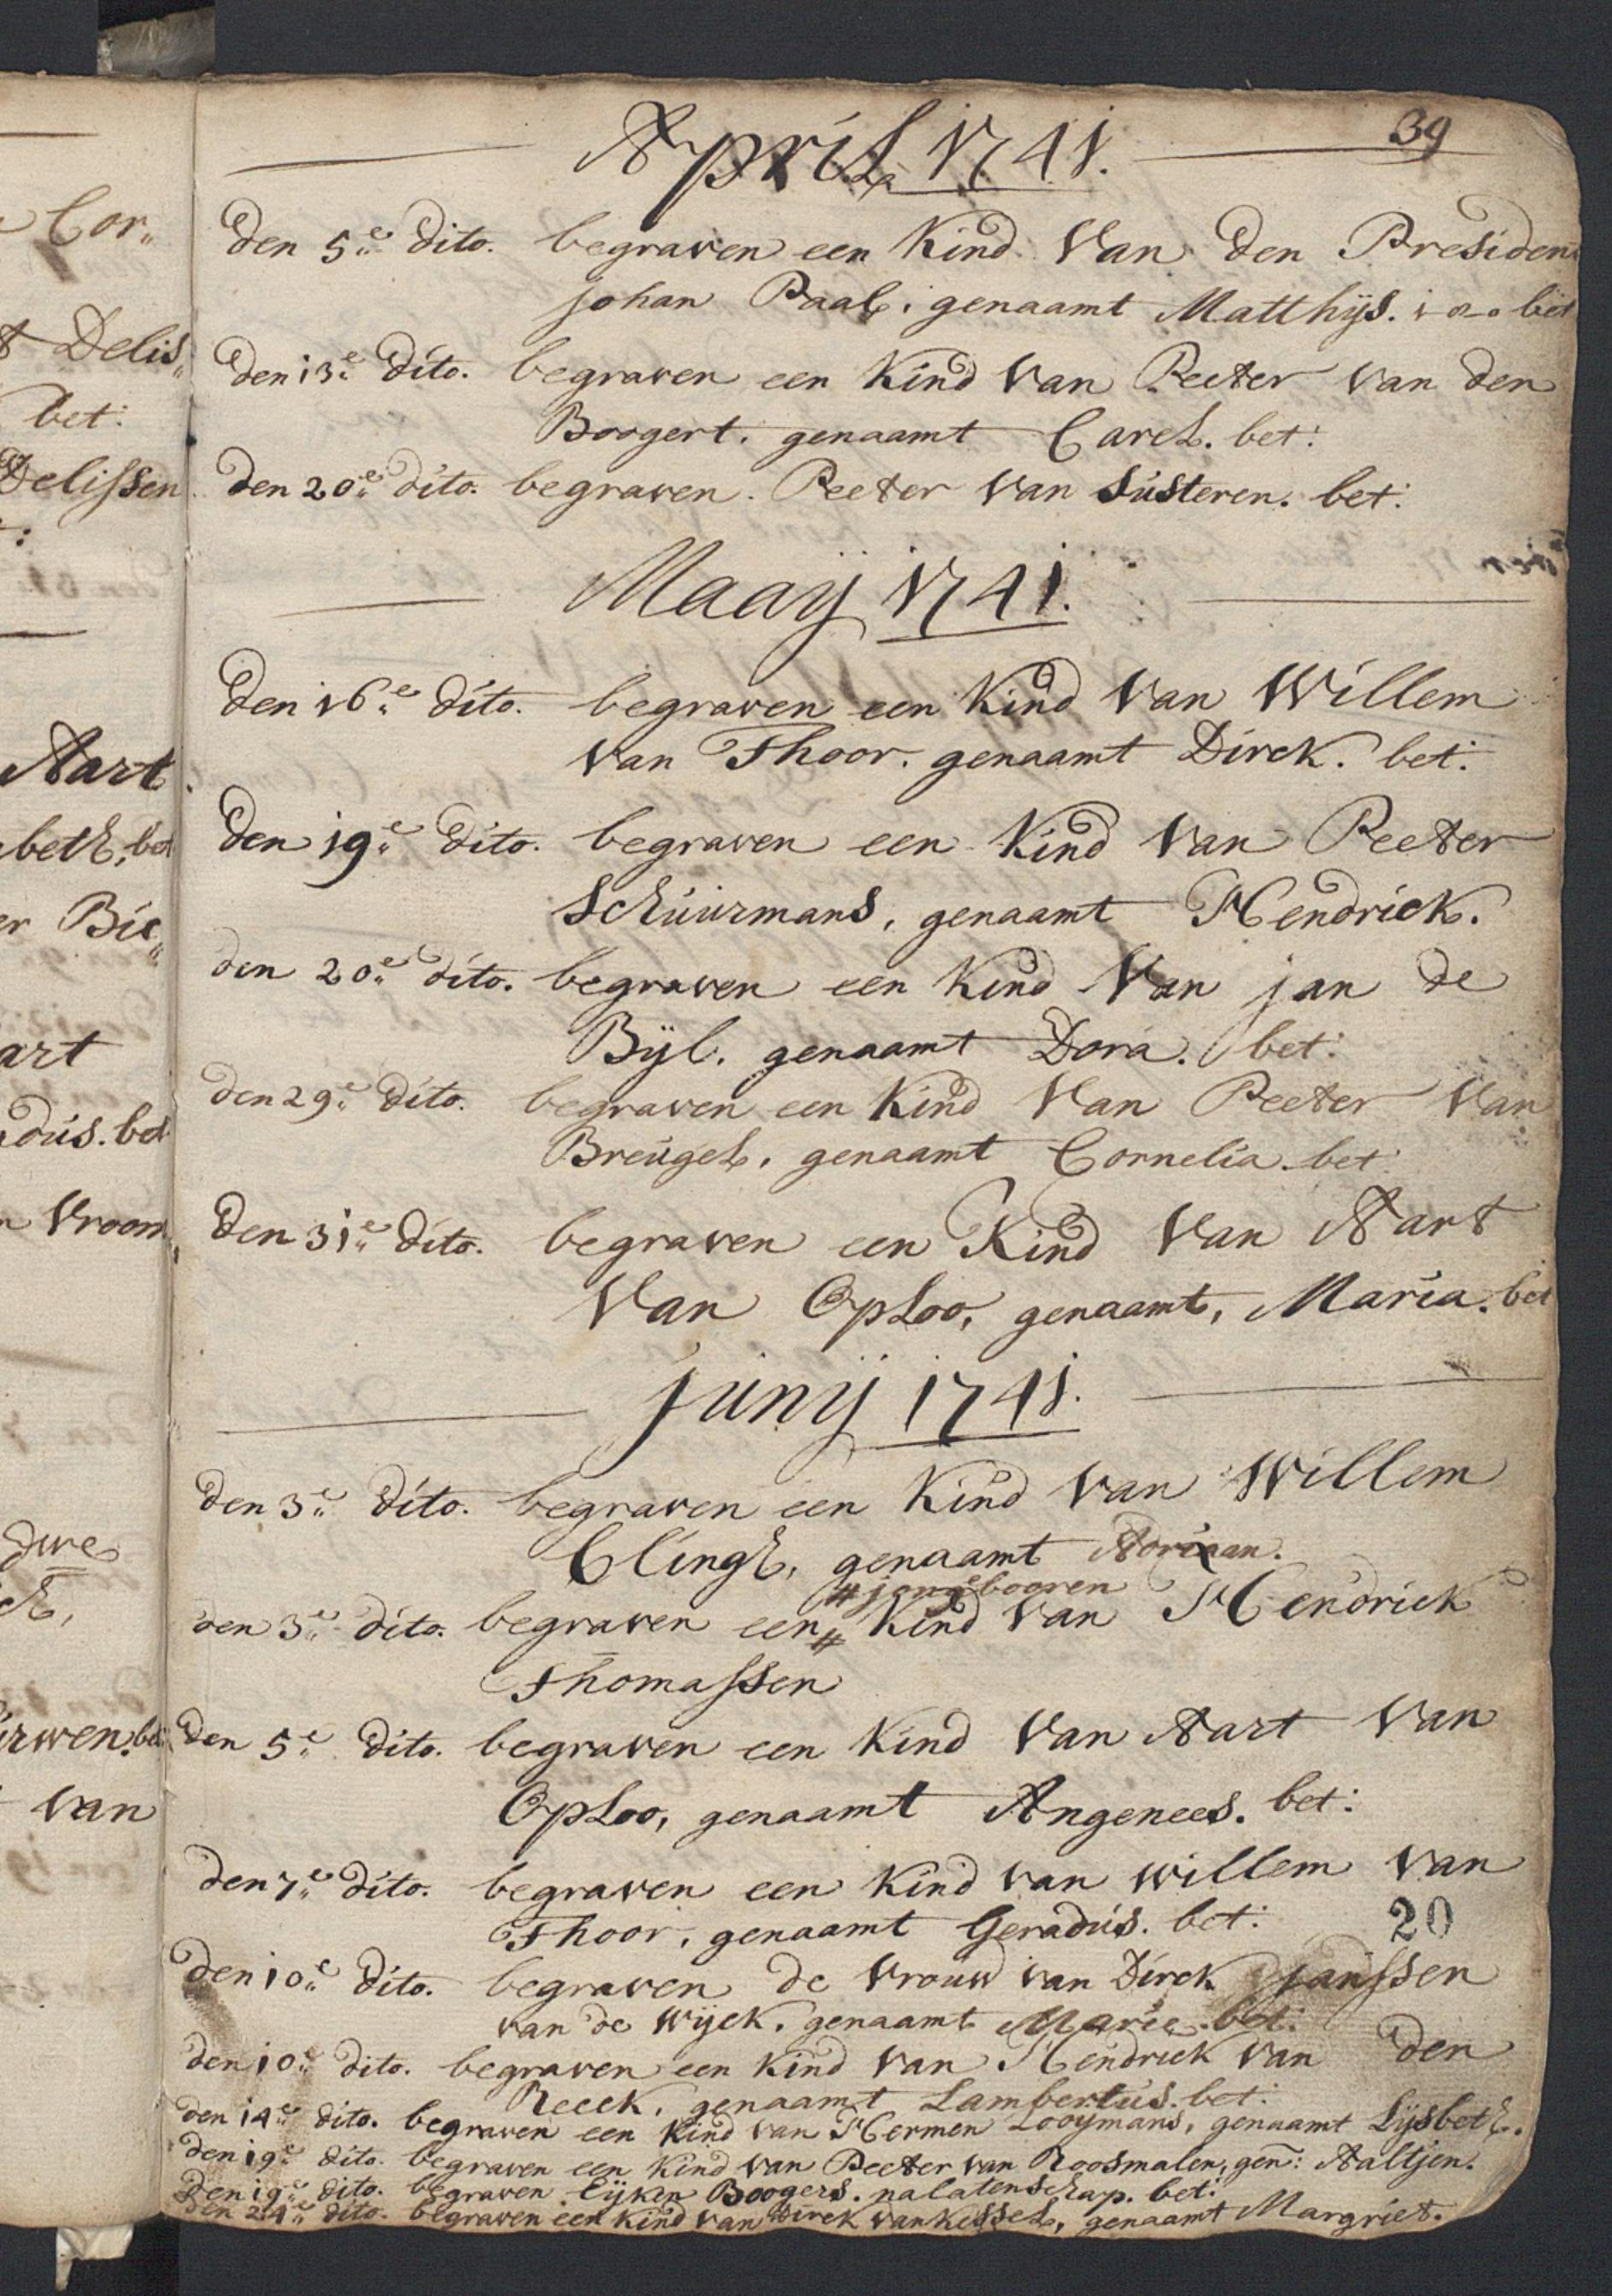 39
April 1741.
Den 5e dito. begraven een Kind Van Den Presiden
Johan Raab. genaamt Matthijs. bet
Den 13e dito. begraven een Kind van Peeter van den
Boogert. genaamt Carel. bet:
Den 20e dito. begraven. Peeter van Susteren. bet:
Maaij 1741.
Den 16e dito. begraven een Kind van Willem
van Thoor. genaamt Dirck. bet:
Den 19e dito. begraven een Kind van Peeter
Schuurmans, genaamt Hendrick.
den 20e dito. begraven een Kind Van jan de
Bijl. genaamt Dora. bet:
den 29e dito. begraven een Kind Van Peeter Van
Breugel, genaamt Cornelia bet
Den 31e dito. begraven een Kind Van Aart
Van Oploo, genaamt, Maria. bet
Junij 1741.
Den 3e dito. begraven een Kind van Willem
Clingh, genaamt Adriaan.
# jongebooren
den 3e dito. begraven een # Kind van Hendrick
Thomassen
den 5e dito. begraven een Kind Van Aart Van
Oploo, genaamt Angenees. bet:
den 7e dito. begraven een Kind van willem van
Thoor, genaamt Geradus. bet: 20
Den 10e dito. begraven de Vrouw van Dirck janssen
van de Wijck. genaamt Marie. bet:
den 10e dito. begraven een Kind van Hendrick van den
Reeck. genaamt Lambertus. bet:
den 14e dito. begraven een Kind van Hermen Looijmans, genaamt Lijsbeth.
Den 19e dito. begraven een Kind van Peeter van Roosmalen, gen: Aaltjen.
Den 19e dito. begraven Eijken Boogers. nalatenschap. bet:
den 24e dito. begraven een Kind van Dirck van Kessel, genaamt Margriet.
Cor„
Delis„
bet:
Delissen
Aart
beth, bet
Bie„
art
dus. bet
Vroom
dwe
van